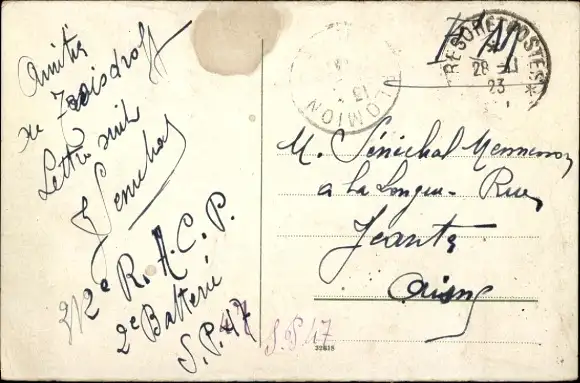 Amitiés
de Zoisdroff
Lettre suit
Senechal
212e R.A.C.P.
2e Batterie
S.P. 47
S.P. 47
F M
TRESOR ET POSTES
*
28 - 11
23
*
LOMION
13
M. Sénéchal Mennesson
a la Longue - Rue
Jeantes
Aisne
32618